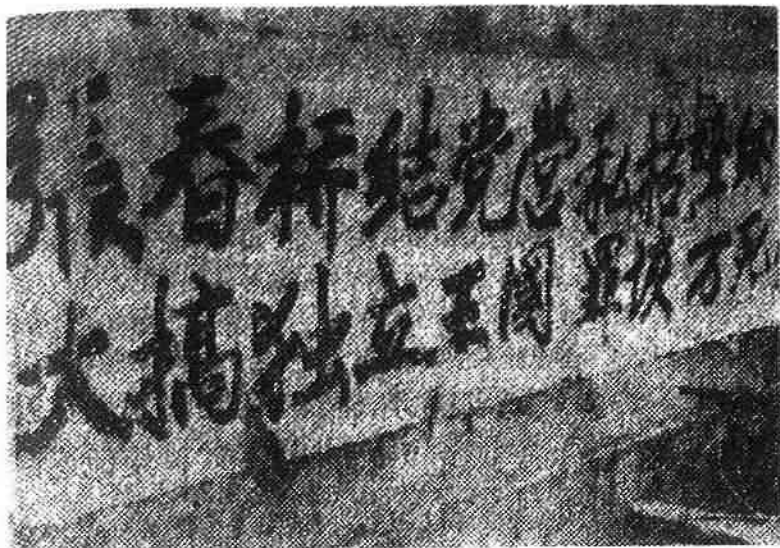 张春桥结党营私
大搞独立王国罪该万死